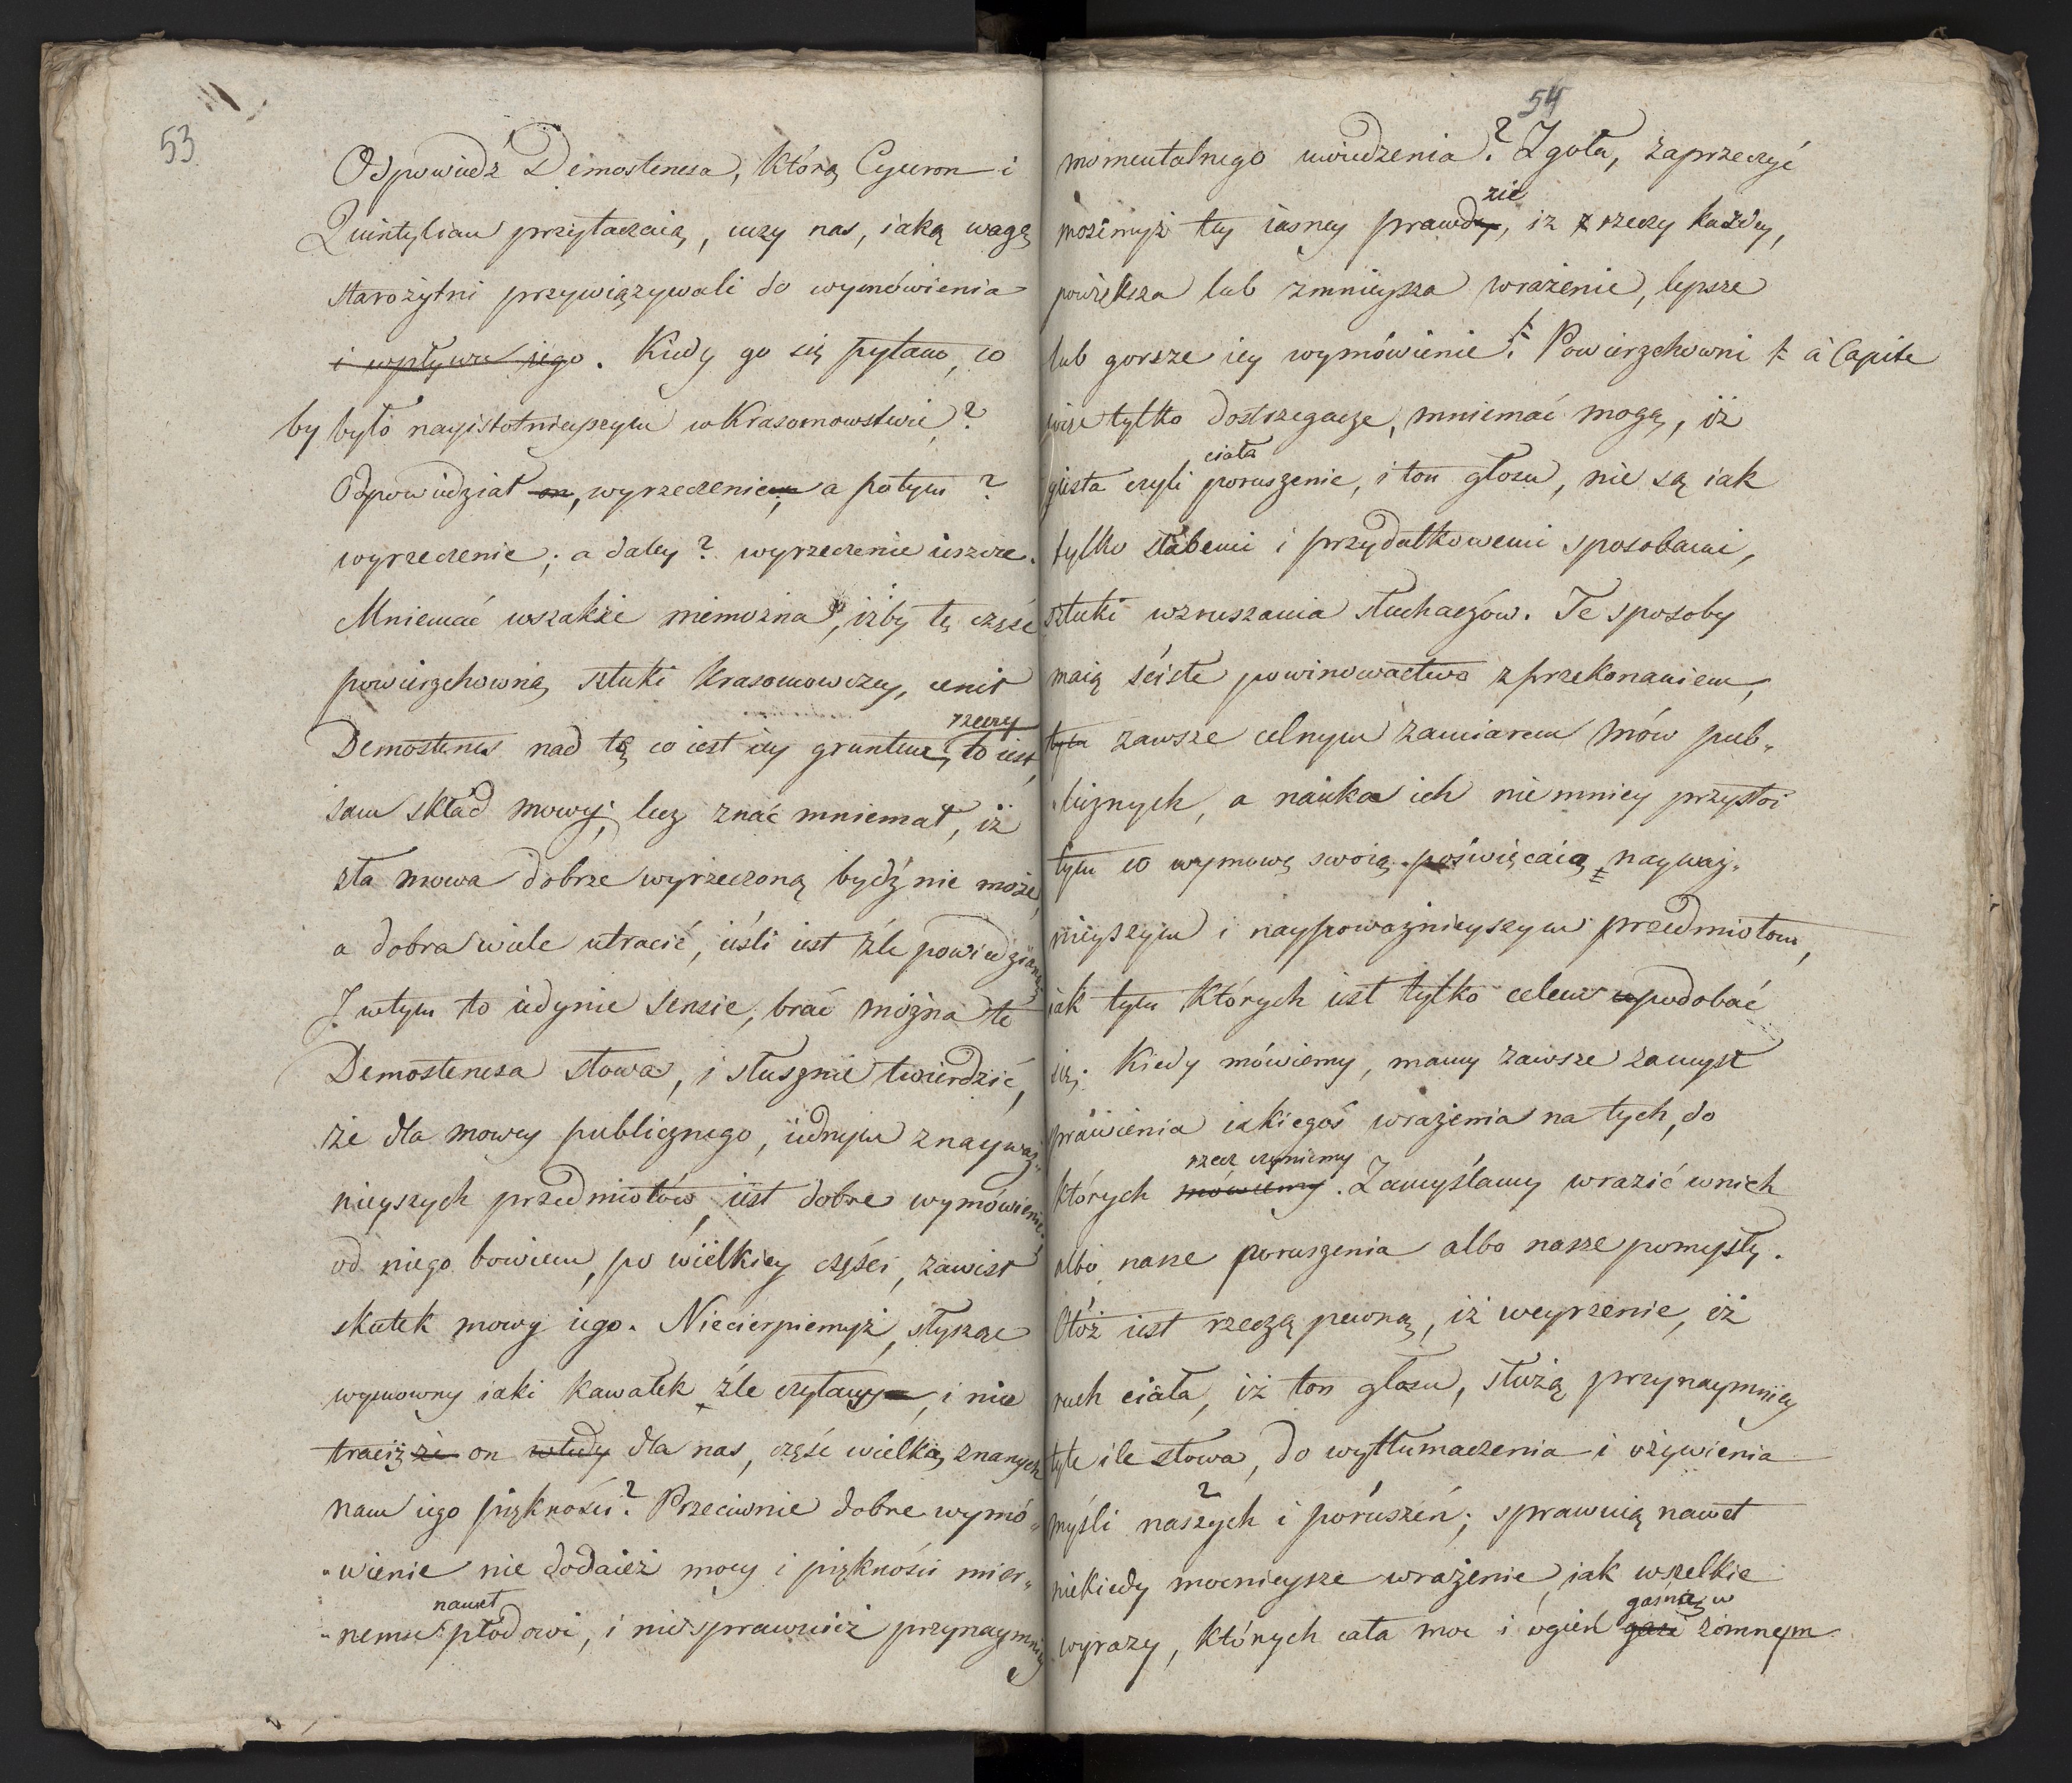 53
Odpowiedź Demostenesa, którą Cyceron i
Quintylian przytaczaią, uczy nas, iaką wagę
starożytni przywiązywali do wymówienia
i wpływu iego. Kiedy go się pytano, co
by było nayistotnieyszym w Krasomowstwie?
Odpowiedział on, wyrzeczeniem, a potym?
wyrzeczenie; a daley? wyrzeczenie ieszcze.
Mniemać wszakże niemożna, iżby tę część
powierzchowną sztuki krasomowczey, cenił
rzeczy
Demostenes nad tę co iest iey gruntem, to iest,
sam skład mowy; lecz znać mniemał, iż
zła mowa dobrze wyrzeczoną bydź nie może,
a dobra wiele utracić, ieśli iest źle powiedzianą.
I w tym to iedynie sensie, brać można te
Demostenesa słowa, i słusznie twierdzić,
że dla mowcy publicznego, iednym z nayważ„
nieyszych przedmiotów, iest dobre wymówienie;
od niego bowiem, po wielkiey części, zawisł
skutek mowy iego. Niecierpiemyż, słysząc
wymowny iaki kawałek źle czytany, i nie
traciż że on wtedy dla nas, część wielką znanych
nam iego piękności? Przeciwnie dobre wymó„
„wienie nie dodaież mocy i piękności mier„
nawet
„nemu płodowi, i nie sprawuież przynaymniey
54
momentalnego uwiedzenia? Zgoła, zaprzeczyć
zie
możemyż tey iasney prawdy, iż z rzeczy każdey,
powiększa lub zmnieysza wrażenie, lepsze
lub gorsze iey wymówienie. Powierzchowni à Capite
więc tylko dostrzegacze, mniemać mogą, iż
ciała
gesta czyli poruszenie, i ton głosu, nie są iak
tylko słabemi i przydatkowemi sposobami,
sztuki wzruszania słuchaczów. Te sposoby
maią ścisłe powinowactwo z przekonaniem,
tym zawsze celnym zamiarem mów pub„
„licznych, a nauka ich niemniey przystoi
tym co wymowę swoią poświęcaią nayważ„
nieyszym i naypoważnieyszym przedmiotom,
iak tym których iest tylko celem upodobać
się. Kiedy mówiemy, mamy zawsze zamysł
sprawienia iakiegoś wrażenia na tych, do
rzecz czyniemy
których mówiemy. Zamyślamy wrazić w nich
albo nasze poruszenia albo nasze pomysły.
Otóż iest rzeczą pewną, iż weyrzenie, iż
ruch ciała, iż ton głosu, służą przynaymniey
tyle ile słowa, do wytłumaczenia i ożywienia
myśli naszych i poruszeń; sprawuią nawet
niekiedy mocnieysze wrażenie, iak wszelkie
gasnąż w
wyrazy, których cała moc i ogień gasi zimnym